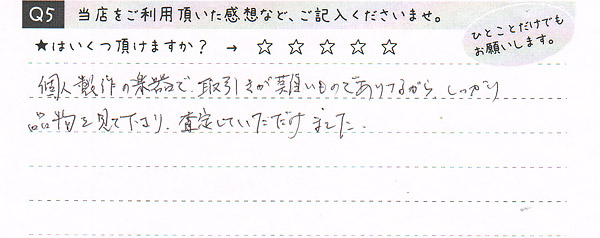 Q5 当店をご利用頂いた感想など、ご記入くださいませ。
★はいくつ頂けますか？ → ☆ ☆ ☆ ☆ ☆
ひとことだけでも
お願いします。
個人製作の楽器で、取引きが難いものでありながら、しっかり
品物を見て下さり、査定していただけました。